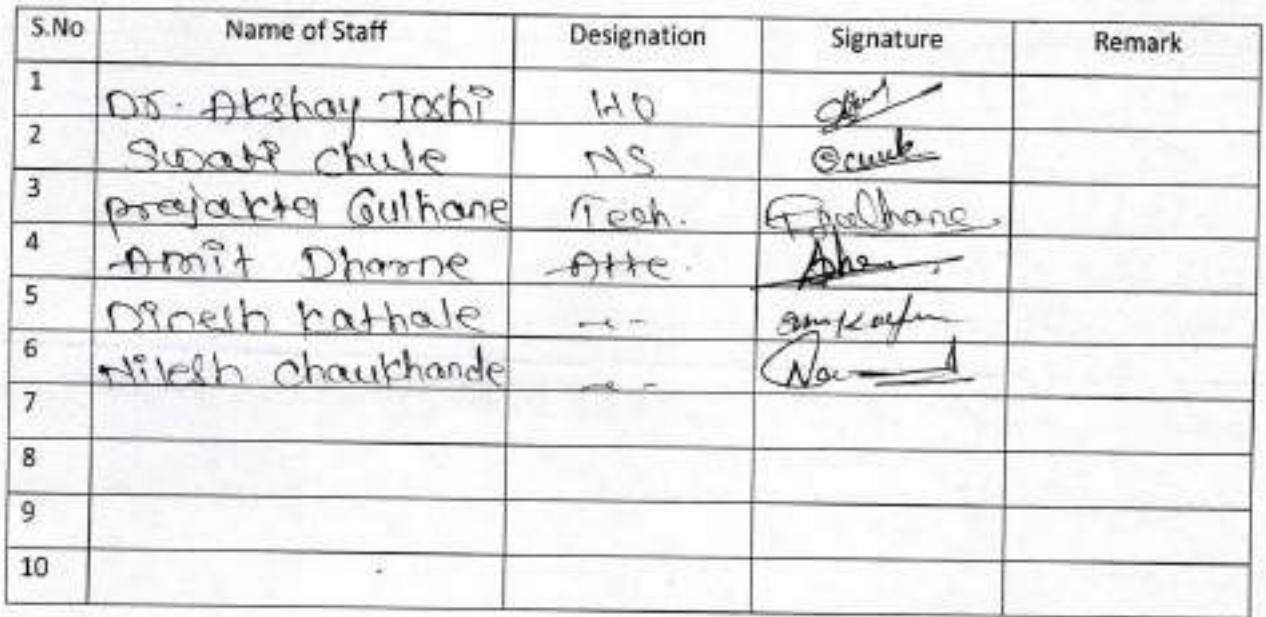 S.No Name of Staff Designation Signature Remark
1 Dr. Akshay Joshi
2 Swati Chule NS
3 prajakta Gulhane Tech. Gulhane
4 Amit Dharne Atte.
5 Dinesh Kathale -"-
6 Nilesh Chaukhande -"-
7
8
9
10